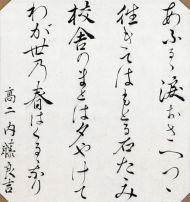 あふるゝ涙おさへつつ
往きてはもとる石たたみ
校舎のまとは夕やけて
わが世乃春はくるゝなり
高二 内藤良吉